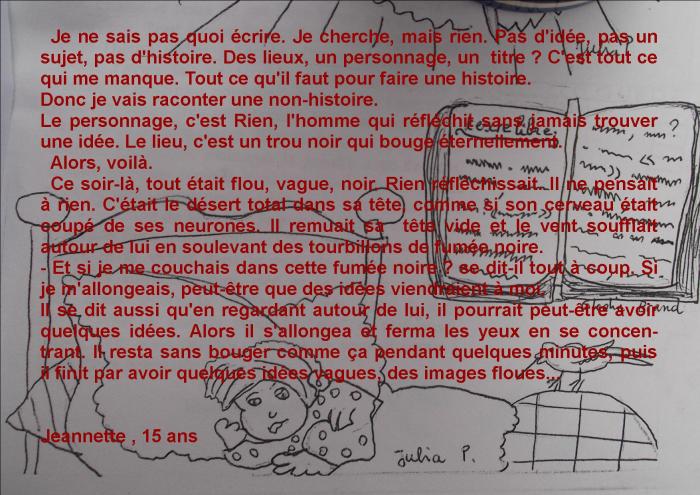 Je ne sais pas quoi écrire. Je cherche, mais rien. Pas d'idée, pas un
sujet, pas d'histoire. Des lieux, un personnage, un  titre ? C'est tout ce
qui me manque. Tout ce qu'il faut pour faire une histoire.
Donc je vais raconter une non-histoire.
Le personnage, c'est Rien, l'homme qui réfléchit sans jamais trouver
une idée. Le lieu, c'est un trou noir qui bouge éternellement.
Alors, voilà.
Ce soir-là, tout était flou, vague, noir. Rien réfléchissait. Il ne pensait
à rien. C'était le désert total dans sa tête, comme si son cerveau était
coupé de ses neurones. Il remuait sa  tête vide et le vent soufflait
autour de lui en soulevant des tourbillons de fumée noire.
- Et si je me couchais dans cette fumée noire ? se dit-il tout à coup. Si
je m'allongeais, peut-être que des idées viendraient à moi.
Il se dit aussi qu'en regardant autour de lui, il pourrait peut-être avoir
quelques idées. Alors il s'allongea et ferma les yeux en se concen-
trant. Il resta sans bouger comme ça pendant quelques minutes, puis
il finit par avoir quelques idées vagues, des images floues...
Jeannette , 15 ans
Julia P.